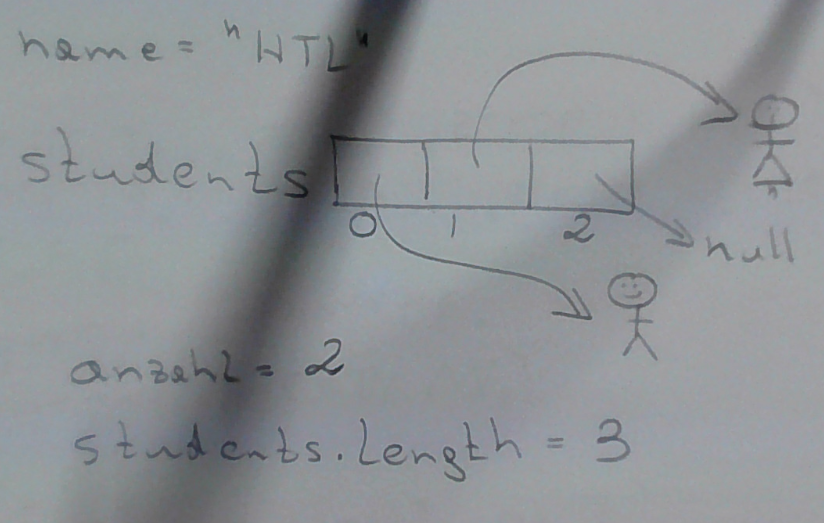 name = "WTL"
students
0 1 2
null
anzahl = 2
students.length = 3